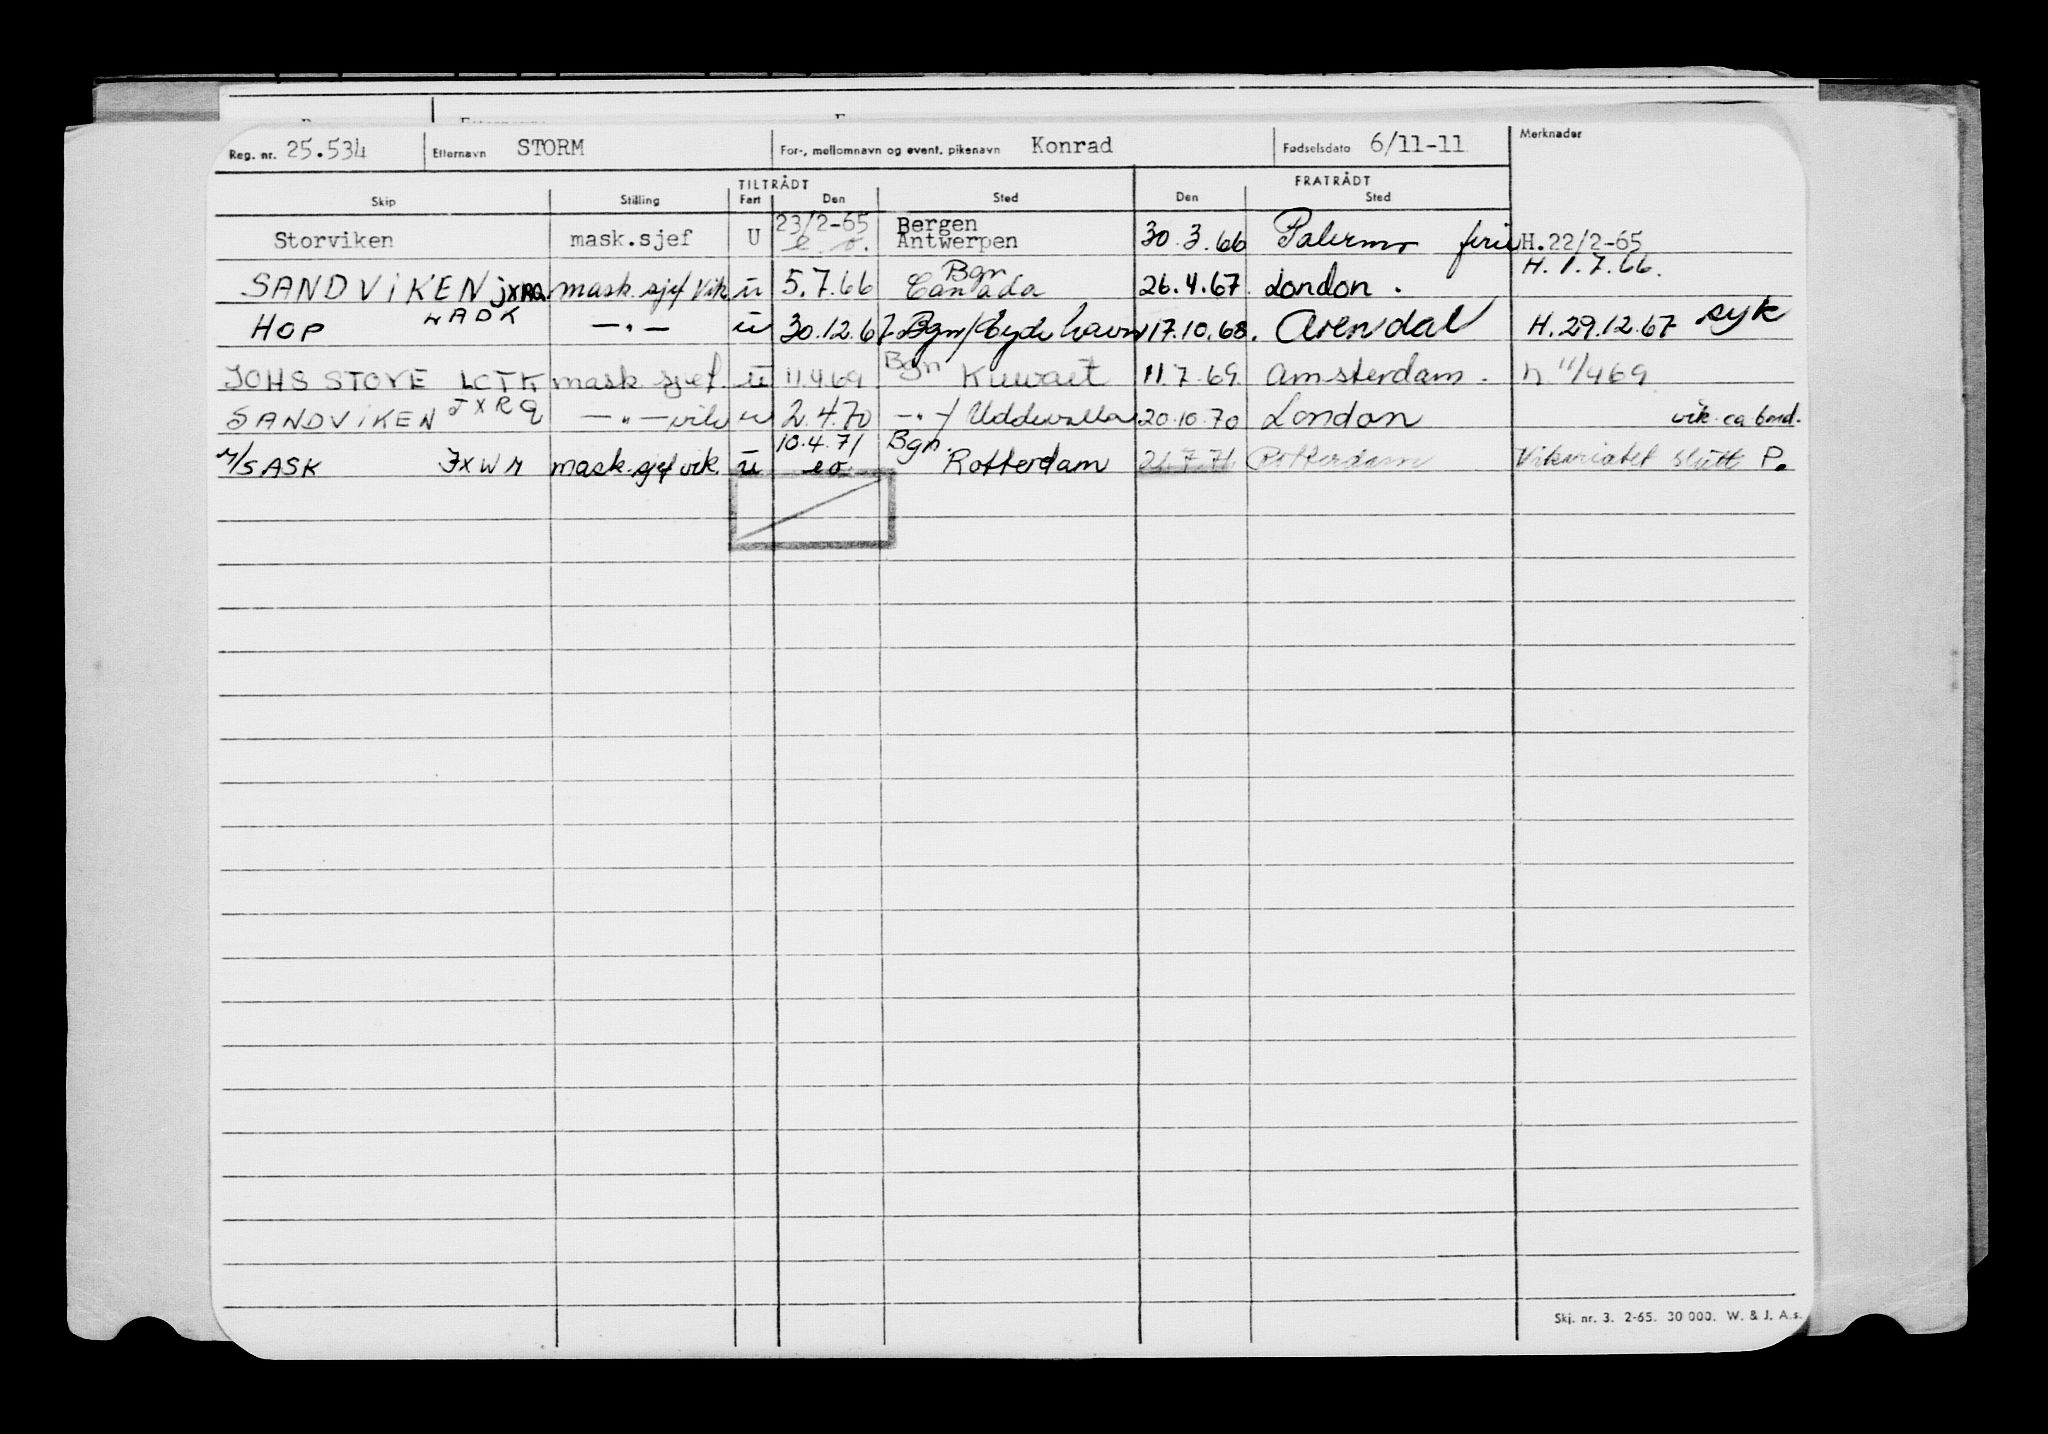 Reg. nr. 25.534 Etternavn STORM For-, mellomnavn og event. pikenavn Konrad Fødselsdato 6/11-11 Merknader
TILTRÅDT FRATRÅDT
Skip Stilling Fart Den Sted Den Sted
23/2-65 Bergen
Storviken mask.sjef U e o. Antwerpen 30.3.66 Palermo ferie H.22/2-65
Bgn H. 1.7.66.
SANDVIKEN JXRQ mask. sjef Vik u 5.7.66 Canada 26.4.67. London.
HOP LADK —"— u 30.12.67 Bgn/Eydehavn 17.10.68. Arendal H. 29.12.67 syk
JOHS STOVE LCTK mask. sjef. u 11.4.69 Bgn Kuwait 11.7.69 Amsterdam. h 11/4 69
SANDVIKEN JXRQ —"— vik u 2.4.70 —"—/ Uddevalla 20.10.70 London vik. ca bord.
10.4.71 Bgn.
M/S ASK JXWM mask. sjef vik. u e o Rotterdam 21.7.71 Rotterdam Vikariatet slutt P.
Skj. nr. 3. 2-65. 30 000. W. & J. A.s.